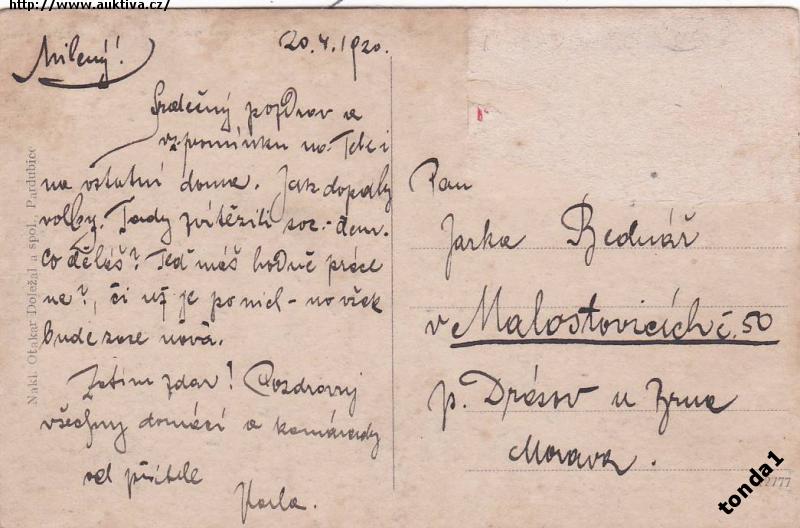 http://www.auktiva.cz/
20.4.1920.
Milený!
Srdečný pozdrav a
vzpomínku na Tebe i
na ostatní doma. Jak dopadly
volby. Tady zvítězili soc.-dem.
Co děláš? Teď máš hodně práce
ne?, či už je po nich - no však
bude zase nová.
Zatím zdar! Pozdravuj
všechny domácí a kamarády
od přítele
Karla.
Pan
Jarka Bednář
v Malostovicích č. 50
p. Drásov u Brna
Morava.
Nakl. Otakar Doležal a spol., Pardubice
tonda1